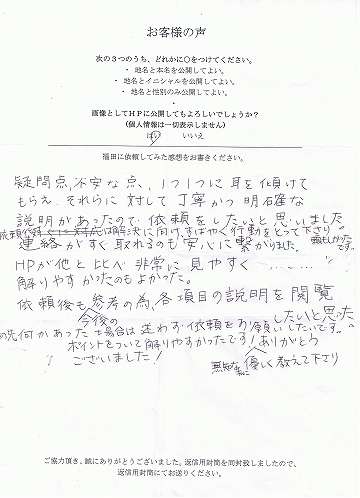 お客様の声
次の3つのうち、どれかに○をつけてください。
・ 地名と本名を公開してよい。
・ 地名とイニシャルを公開してよい。
・ 地名と性別のみ公開してよい。
・
画像としてHPに公開してもよろしいでしょうか?
(個人情報は一切表示しません)
はい いいえ
福田に依頼してみた感想をお書きください。
疑問点,不安な点、1つ1つに耳を傾けて
もらえ、それらに対して丁寧かつ明確な
説明があったので、依頼をしたいと思いました
解決に向け、すばやく行動をとって下さり
連絡がすぐ取れるのも安心に繋がりました。
HPが他と比べ非常に見やすく
解りやすかったのもよかった。
依頼後も参考の為、各項目の説明を閲覧
今後の
先何かあった場合は迷わず依頼をお願いしたいです。
したいと思った
ポイントをついて解りやすかったです!ありがとう
ございました!
優しく教えて下さり
ご協力頂き、誠にありがとうございました。返信用封筒を同封致しましたので、
返信用封筒にてお送りください。